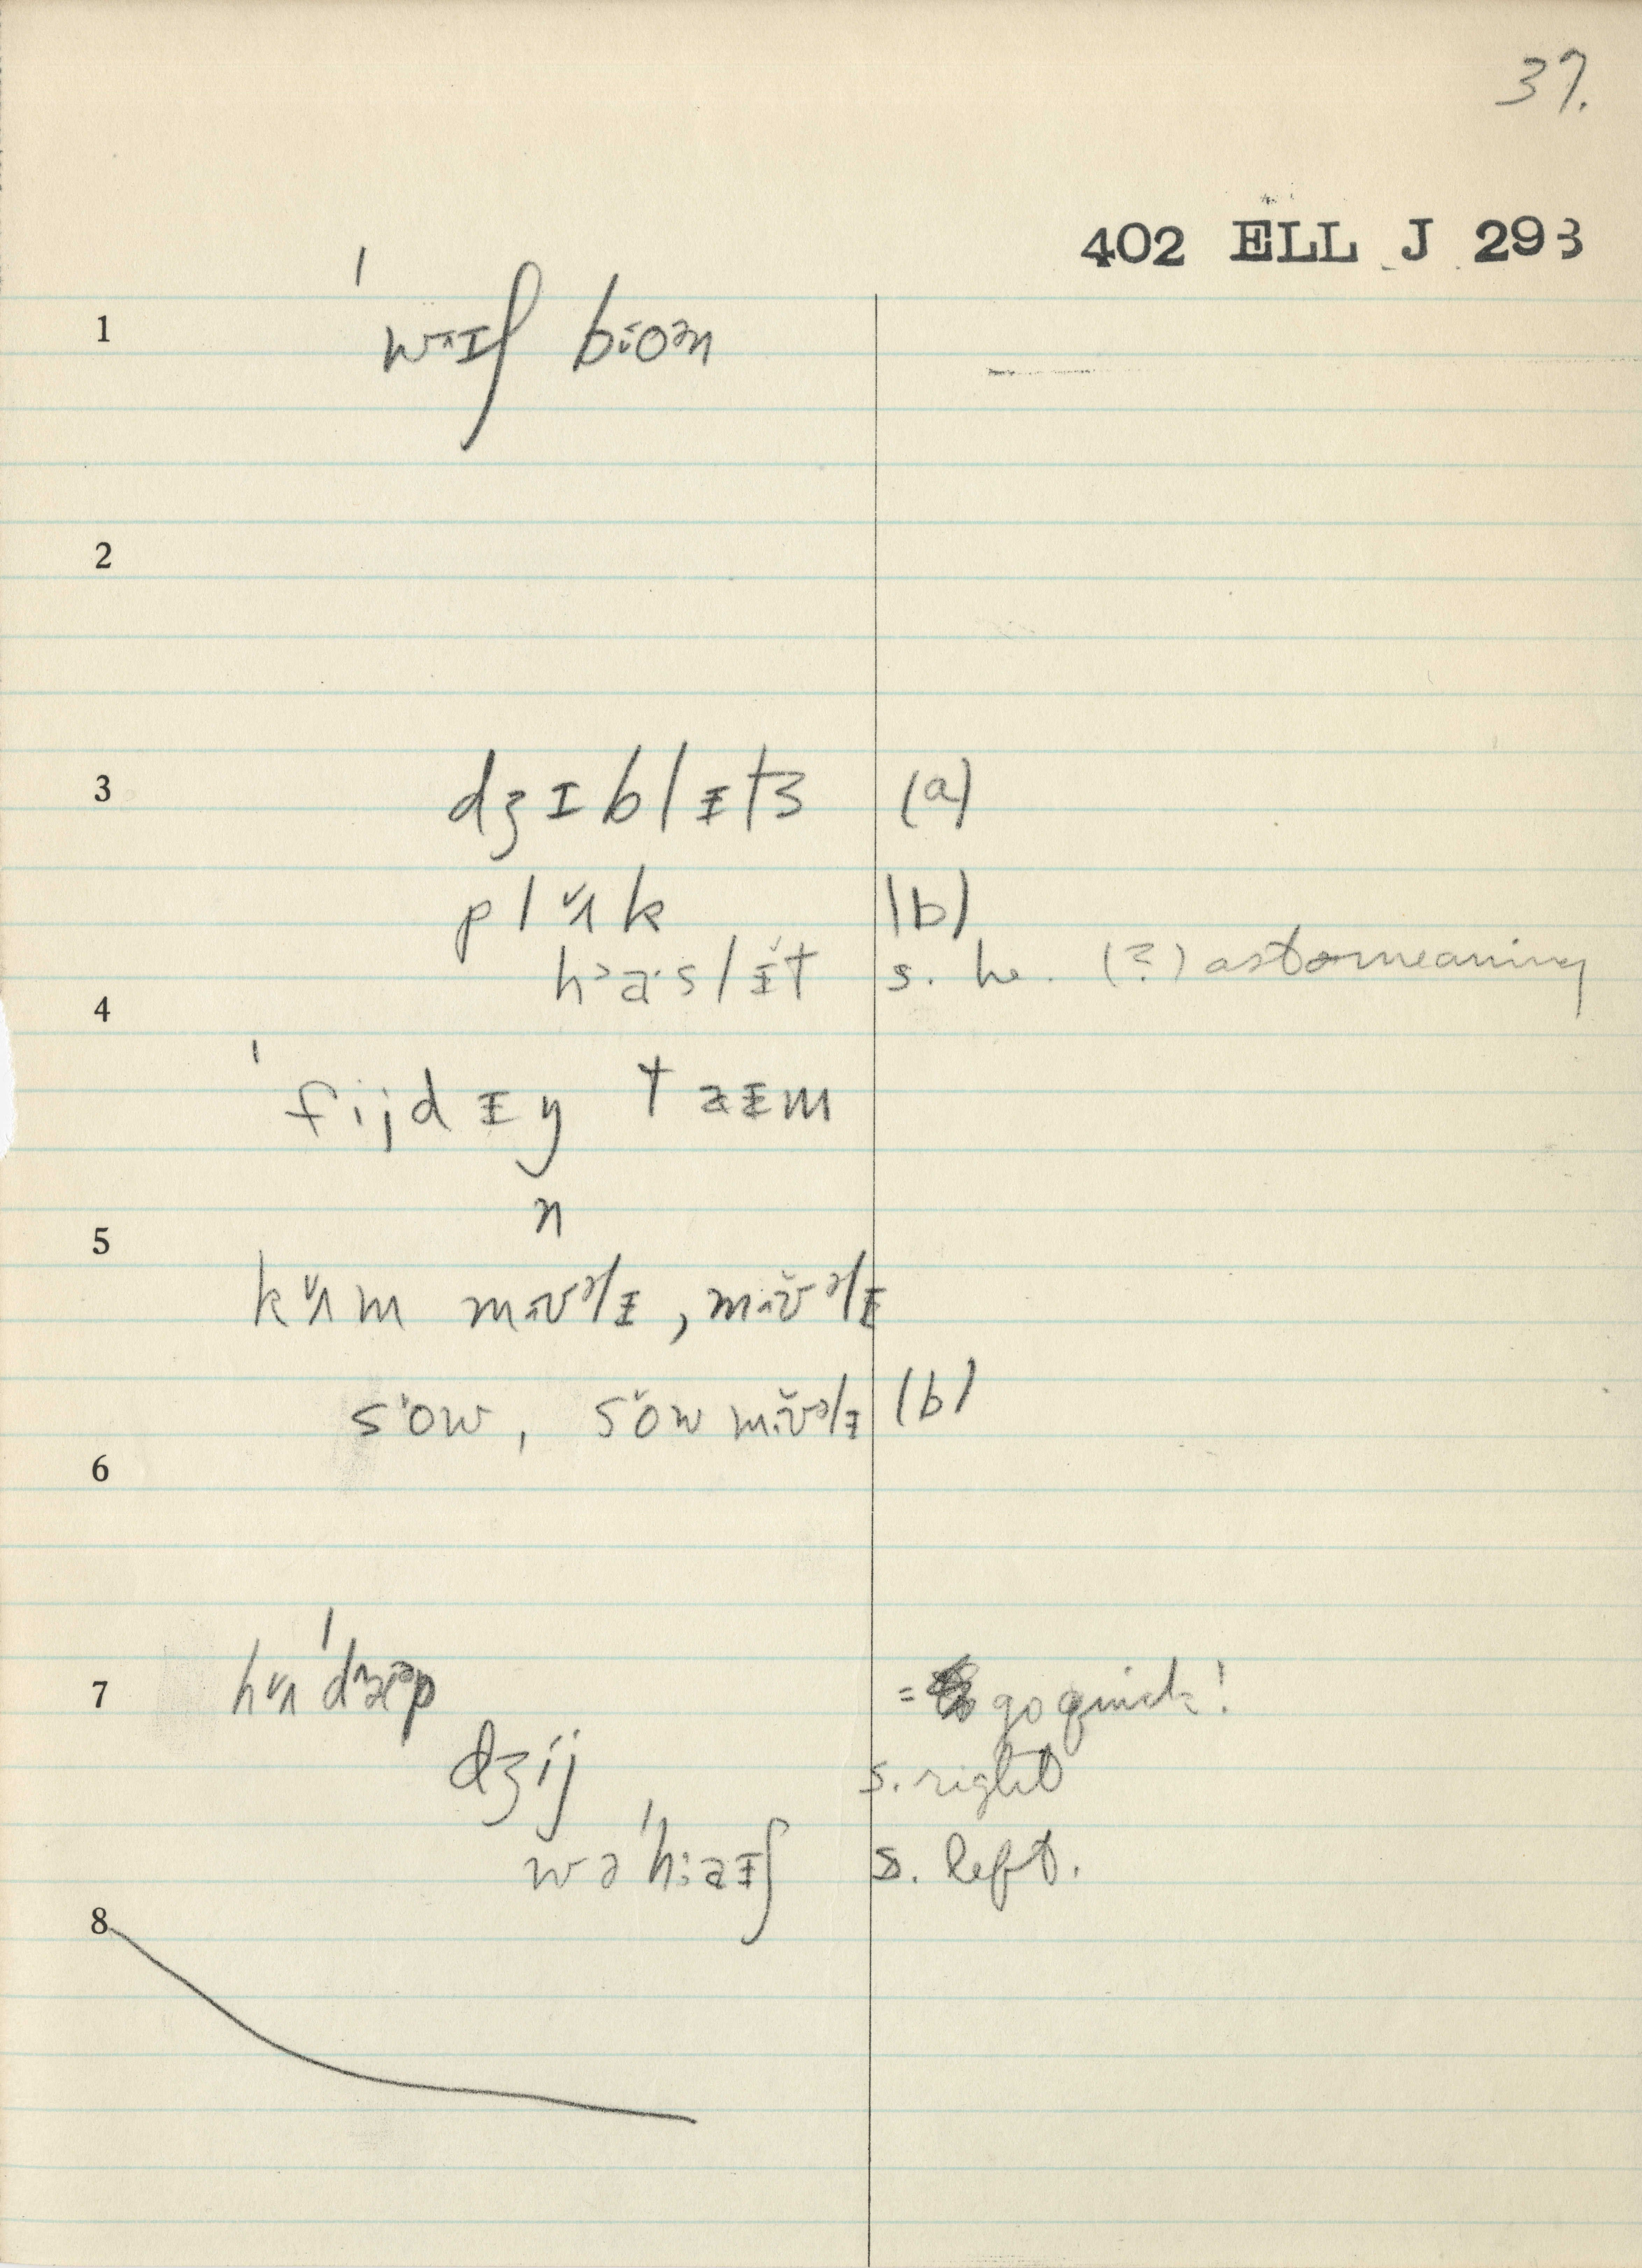 37.
402 ELL J 293
1 ˈwɪʃ bɪoən
2
3 dʒɪblɪts (a)
plʌk (b)
haslɪt s. h. (?) as to meaning
4
ˈfijdɪŋ taɪm
n
5
kʌm mɪvəlɪ, mɪvəlɪ
sow, sow mɪvəlɪ (b)
6
7 hʌˈdʒəp = go quick!
dʒij s. right
wəˈhaɪʃ s. left.
8